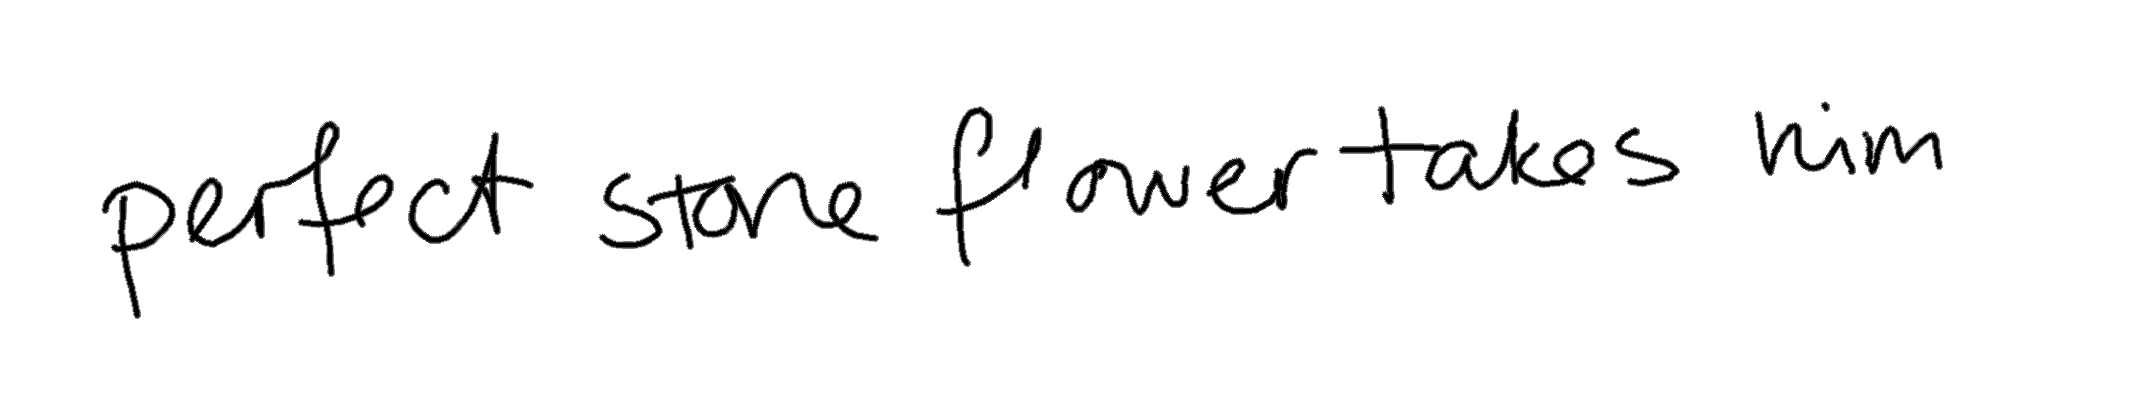 perfect stone flower takes him